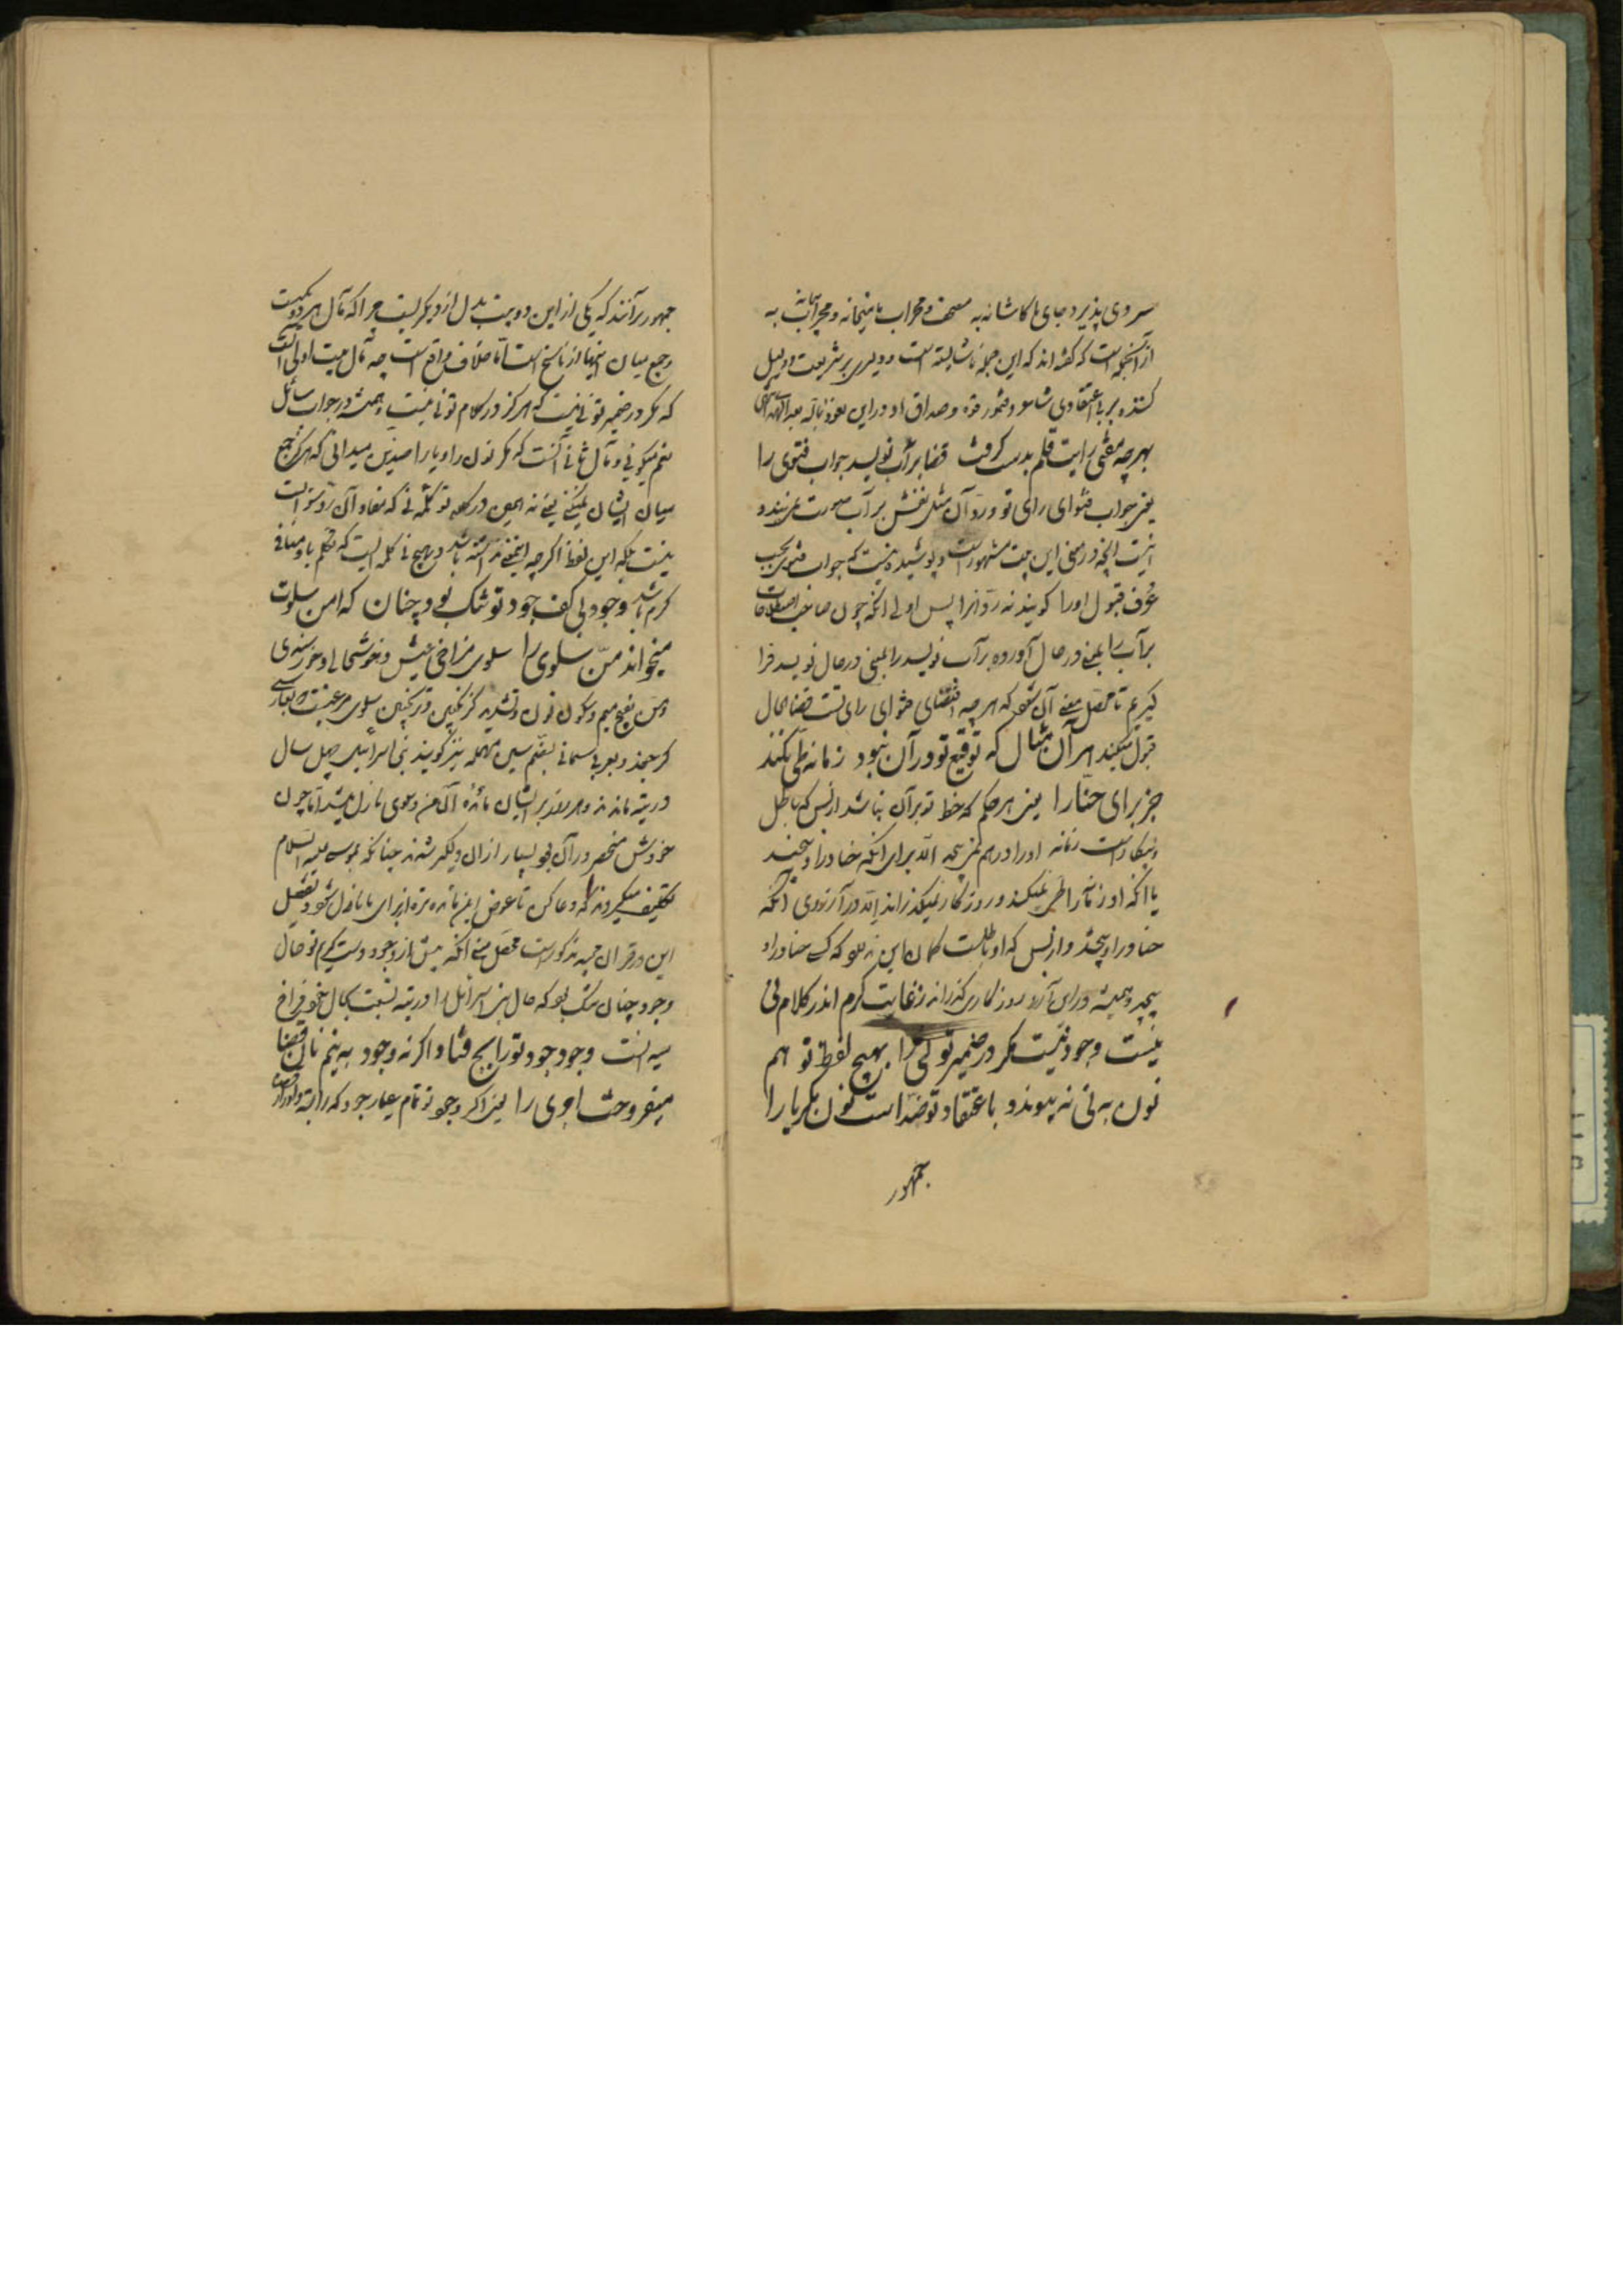 سر وی پذیرد جای ها کاشانه به مصحف و محراب با میخانه و محراب به
از آنجمله است که گفته اند که این جمله ناشایسته است و دلیری بر شریعت و دلیل
کننده بر بی اعتقادی شاعر
بهر چه مفتی رایت قلم بدست گرفت قضا بر آب نویسد جواب فتوی را
یعنی جواب فتوای رای تو و رد آن مثل نقش بر آب صورت نمی بندد
اینست آنچه در معنی این بیت مشهور است و پوشیده نیست که جواب فتوی بحسب
عرف قبول او را گویند نه رد آنرا پس اولی آنکه چون صاحب اصطلاحات
بر آب را بمعنی در حال آورده بر آب نویسد را بمعنی در حال نویسد فرا
گیریم تا محصل معنی آن شود که هر چه اقتضای فتوای رای تست قضا فی الحال
قبول میکند هر آن مثال که توقیع تو در آن نبود زمانه طی نکند
جز برای حنا را یعنی هر حکم که خط تو بر آن نباشد از بس که باطل
و بیکار است زمانه او را در هم نمی پیچد الا برای آنکه حنا در او پیچند
یا آنکه او زمانه را طی نمیکند و روزگار نمیگذراند الا در آرزوی آنکه
حنا در او پیچند و از بس که او باطلست گمان این ندارد که کسی حنا در او
پیچد و همیشه در این آرزو روزگار میگذراند ز غایت کرم اندر کلام تو نی
نیست وجود نیست مگر در ضمیر تو نی را بهیچ لفظ تو هم
نون به نی نپیوندد با اعتقاد تو ضد است نون مگر یا را
جمهور
جمهور بر آنند که یکی از این دو بیت بدل از دیگریست چرا که مآل هر دو یکیست
و جمع میان اینها از ناسخ است اما خلاف واقع است چه مآل بیت اولی آنست
که مگر در ضمیر تو نی نیست که هرگز در کلام تو نی نیست و همیشه در جواب سائل
نعم میگوئی و مآل ثانی آنست که مگر نون را و یا را ضدین میدانی که هرگز جمع
میان ایشان نمیکنی یعنی نه همین در کلام تو کلمه نی که مفاد آن رد سؤال است
نیست بلکه این لفظ اگر چه این معنی نداشته باشد و بهیچ نی کلمه ایست که تکلم باو منافی
کرم باشد وجود بی کف جود تو تنگ بود چنان که امن سلوت
میخواند من و سلوی را سلوی فراخی عیش و خوشحالی و خورسندی
و من بفتح میم و سکون نون و تشدید گزنگبین و ترنگبین سلوی مرغیست که بفارسی
کرجفو و بعربی سمانی بضم سین مهمله نیز گویند بنی اسرائیل چهل سال
در تیه ماندند و هر روز بر ایشان مائده آن من و سلوی نازل میشد اما چون
خورش منحصر در آن بود بسیار از آن دلگیر شدند چنانکه بموسی علیه السلام
تکلیف میکردند که دعا کن تا عوض این مائده تره از برای ما نازل شود و تفصیل
این در قرآن مجید مذکور است محصل معنی آنکه پیش از وجود دست کرم تو حال
وجود چنان تنگ بود که حال بنی اسرائیل را در تیه نسبت بحال خود فراخ
میدانست وجود جود تو رایج فتاد اگر نه وجود به نیم نان قضا
میفروخت اجری را یعنی اگر وجود تو تمام عیار جود که رایت